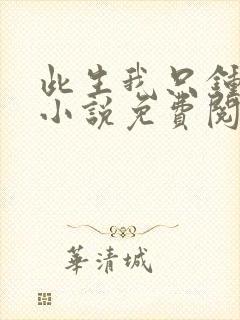 此生我只鍾
小說免費閱
華清城